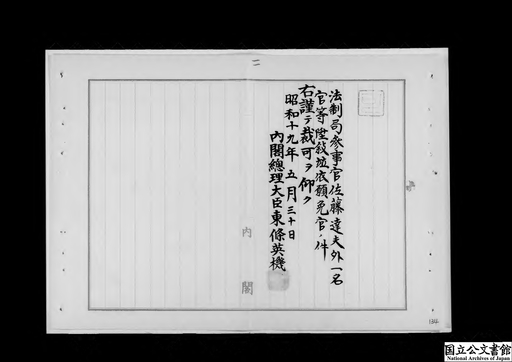 二
法制局参事官佐藤達夫外一名
官等陞敍並依願免官ノ件
右謹テ裁可ヲ仰ク
昭和十九年五月三十日
内閣總理大臣東條英機
内閣
国立公文書館
National Archives of Japan